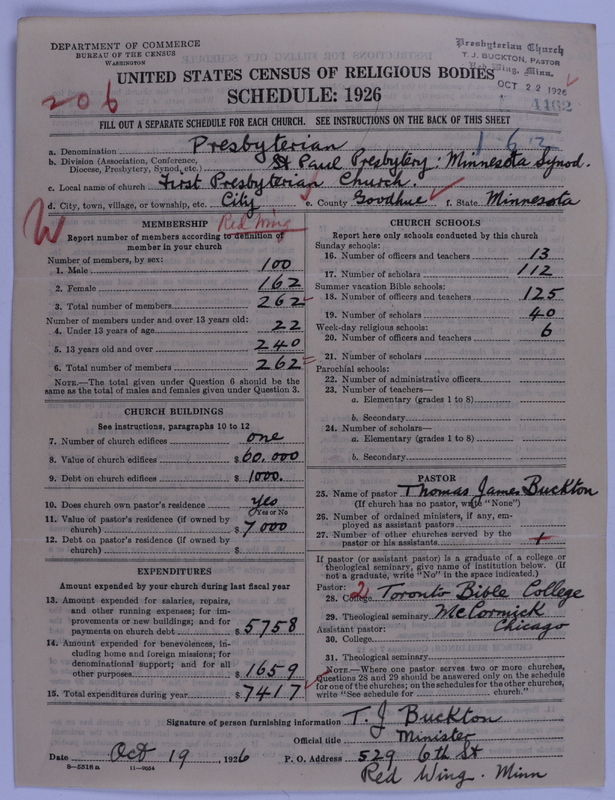 DEPARTMENT OF COMMERCE
BUREAU OF THE CENSUS
WASHINGTON
Presbyterian Church
T. J. BUCKTON, PASTOR
Red Wing, Minn.
OCT 22 1926
4462
206
UNITED STATES CENSUS OF RELIGIOUS BODIES
SCHEDULE: 1926
FILL OUT A SEPARATE SCHEDULE FOR EACH CHURCH. SEE INSTRUCTIONS ON THE BACK OF THIS SHEET
1-6 3
a. Denomination Presbyterian
b. Division (Association, Conference, Diocese, Presbytery, Synod, etc.) St Paul Presbytery: Minnesota Synod.
c. Local name of church First Presbyterian Church.
d. City, town, village, or township, etc. City e. County Goodhue f. State Minnesota
W
Red Wing
MEMBERSHIP
Report number of members according to definition of
member in your church
Number of members, by sex:
1. Male 100
2. Female 162
3. Total number of members 262
Number of members under and over 13 years old:
4. Under 13 years of age 22
5. 13 years old and over 240
6. Total number of members 262
NOTE.—The total given under Question 6 should be
same as the total of males and females given under Question 3.
CHURCH BUILDINGS
See instructions, paragraphs 10 to 12
7. Number of church edifices one
8. Value of church edifices $60.000
9. Debt on church edifices $1000.
10. Does church own pastor's residence yes
Yes or No
11. Value of pastor's residence (if owned by
church) $7000
12. Debt on pastor's residence (if owned by
church) $
EXPENDITURES
Amount expended by your church during last fiscal year
13. Amount expended for salaries, repairs,
and other running expenses; for im-
provements or new buildings; and for
payments on church debt $5758
14. Amount expended for benevolences, in-
cluding home and foreign missions; for
denominational support; and for all
other purposes $1659
15. Total expenditures during year $7417
CHURCH SCHOOLS
Report here only schools conducted by this church
Sunday schools:
16. Number of officers and teachers 13
17. Number of scholars 112
Summer vacation Bible schools:
18. Number of officers and teachers 125
19. Number of scholars 40
Week-day religious schools: 6
20. Number of officers and teachers
21. Number of scholars
Parochial schools:
22. Number of administrative officers
23. Number of teachers—
a. Elementary (grades 1 to 8)
b. Secondary
24. Number of scholars—
a. Elementary (grades 1 to 8)
b. Secondary
PASTOR
25. Name of pastor Thomas James Buckton
(If church has no pastor, write "None")
26. Number of ordained ministers, if any, em-
ployed as assistant pastors
27. Number of other churches served by the
pastor or his assistants +
If pastor (or assistant pastor) is a graduate of a college or
theological seminary, give name of institution below. (If
not a graduate, write "No" in the space indicated.)
Pastor:
28. College 2 Toronto Bible College
29. Theological seminary McCormick
Chicago
Assistant pastor:
30. College
31. Theological seminary
NOTE.—Where one pastor serves two or more churches,
Questions 28 and 29 should be answered only on the schedule
for one of the churches; on the schedules for the other churches,
write "See schedule for church."
Signature of person furnishing information T. J Buckton
Official title Minister
Date Oct 19, 1926 P. O. Address 529 6th St
8—5518a 11—9054
Red Wing. Minn